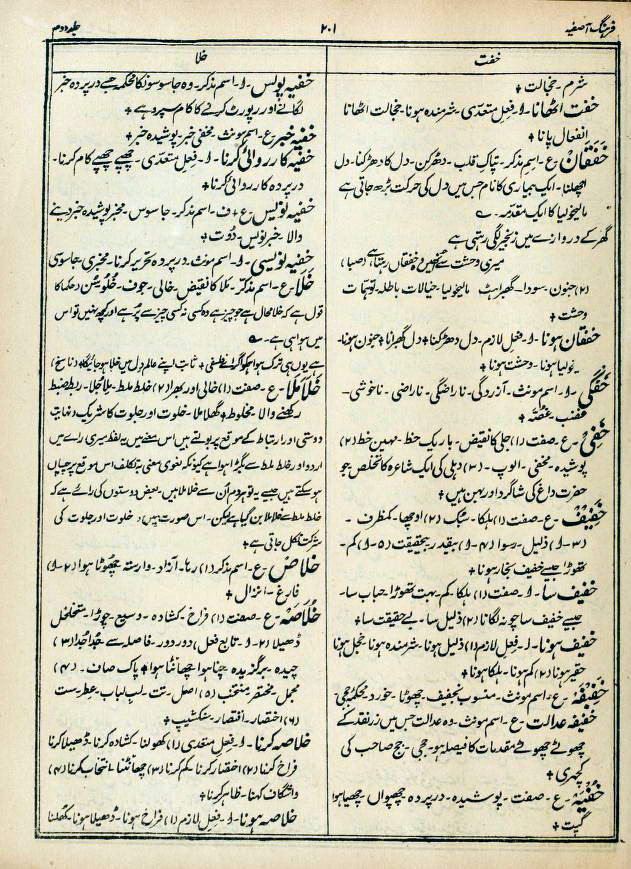 فرہنگ آصفیہ
۲۰۱
جلد دوم
خفت
خلا
شرم - خجالت +
خفت اٹھانا - ا - فعل متعدی - شرمندہ ہونا - خجالت اٹھانا
انفعال پانا +
خفقان - ع - اسم مذکر - تپاک قلب - دھڑکن - دل کا دھڑکنا - دل
اچھلنا - ایک بیماری کا نام جس میں دل کی حرکت بڑھ جاتی ہے
مالیخولیا کا ایک مقدمہ ؎
گھر کے دروازے میں زنجیر لگی رہتی ہے
میری وحشت سے خفقان رہتا ہے (صبا)
(۲) جنون - سودا - گھبراہٹ مالیخولیا - خیالات باطلہ - توہمات
وحشت +
خفقان ہونا - ا - فعل لازم - دل دھڑکنا + دل گھبرانا + جنون ہونا -
ہونا - وحشت ہونا +
خفگی - ا - اسم مونث - آزردگی - ناراضگی - ناراضی - ناخوشی -
غضب - غصہ +
خفی - ع - صفت (۱) جلی کا نقیض - باریک خط - مہین خط (۲)
پوشیدہ - مخفی - الوپ - (۳) دہلی کی ایک شاعرہ کا تخلص جو
حضرت داغ کی شاگرد اور بہن ہیں +
خفیف - ع - صفت (۱) ہلکا - سبک (۲) اوچھا - کمظرف -
(۳-ا) ذلیل - رسوا (۴-ا) بیقدر - بےحقیقت (۵-ا) کم -
تھوڑا جیسے خفیف بخار ہونا +
خفیف سا - ا - صفت (۱) ہلکا - کم - بہت تھوڑا - حباب سا -
جیسے خفیف سا چونہ لگانا (۲) ذلیل سا - بے حقیقت سا +
خفیف ہونا - ا - فعل لازم (۱) ذلیل ہونا - شرمندہ ہونا - خجل ہونا
حقیر ہونا (۲) کم ہونا - ہلکا ہونا +
خفیفہ - ع - اسم مونث - منسوب بخفیف - چھوٹا - خورد -
خفیفہ عدالت - ع - اسم مونث - وہ عدالت جس میں زر نقد کے
چھوٹے چھوٹے مقدمات کا فیصلہ ہو - ججی - جج صاحب کی
کچہری +
خفیہ - ع - صفت - پوشیدہ - در پردہ - چھپواں - چھپا ہوا
گپت +
خفیہ پولس - ا - اسم مذکر - وہ جاسوسونکا محکمہ جسے در پردہ خبر
لگانے اور رپورٹ کرنے کا کام سپرد ہے +
خفیہ خبر - ع - اسم مونث - مخفی خبر - پوشیدہ خبر +
خفیہ کارروائی کرنا - ا - فعل متعدی - چھپے چھپے کام کرنا -
در پردہ کارروائی کرنا +
خفیہ نویس - ع + ف - اسم مذکر - جاسوس - مخبر - پوشیدہ خبر دینے
والا - خبر نویس - دوت +
خفیہ نویسی - ا - اسم مونث - در پردہ تحریر کرنا - مخبری - جاسوسی
خلا - ع - اسم مذکر - ملا کا نقیض - خالی - جوف - حکما کا
قول ہے کہ خلا محال ہے جو چیز ہے وہ کسی نہ کسی چیز سے پر ہے اور کچھ نہیں تو اس
میں ہوا ہی ہے - ؎
ہے یوں ہی ترک ہوا ہو گر اے فلسفی + ثابت اپنے عالم دل میں خلا ہو جائیگا + (ناسخ)
خلا ملا - ع - صفت (۱) خالی اور بھرا (۲) خلط ملط - ملا جلا - رابطہ ضبط
رکھنے والا - مخلوط + گھلا ملا - خلوت اور جلوت کا شریک - نہایت
دوستی اور ارتباط کے موقع پر بولتے ہیں اس معنے میں یہ لفظ میری رائے میں
اردو اور خلط ملط سے بگڑا ہوا ہے کیونکہ لغوی معنی بہ تکلف اس موقع پر چسپاں
ہو سکتے ہیں جیسے یہ تو ہمدم ان سے خلا ملا ہیں - بعض دوستوں کی رائے ہے کہ
خلط ملط سے خلا ملا بن گیا ہے لیکن - اس صورت میں خلوت اور جلوت کی
شرکت نکل جاتی ہے +
خلاص - ع - اسم مذکر (۱) رہا - آزاد - وارستہ - چھوٹا ہوا (۲-ا)
فارغ - انزال +
خلاصہ - ع - صفت (۱) فراخ - کشادہ - وسیع - چوڑا - متخلخل
ڈھیلا (۲-ا - تابع فعل) دور دور - فاصلہ سے - جدا جدا (۳)
چیدہ - برگزیدہ - چنا ہوا - چھانٹا ہوا + پاک صاف - (۴)
مجمل - مختصر - منتخب (۵) اصل - تت - لب لباب - عطر - ست
(۶) اختصار - اقتصار - سنکشیپ +
خلاصہ کرنا - ا - فعل متعدی (۱) کھولنا - کشادہ کرنا - ڈھیلا کرنا
فراخ کرنا (۲) اختصار کرنا - کم کرنا (۳) چھانٹنا - انتخاب کرنا (۴)
واشگاف کہنا - ظاہر کرنا +
خلاصہ ہونا - ا - فعل لازم (۱) فراخ ہونا - ڈھیلا ہونا - کھلنا